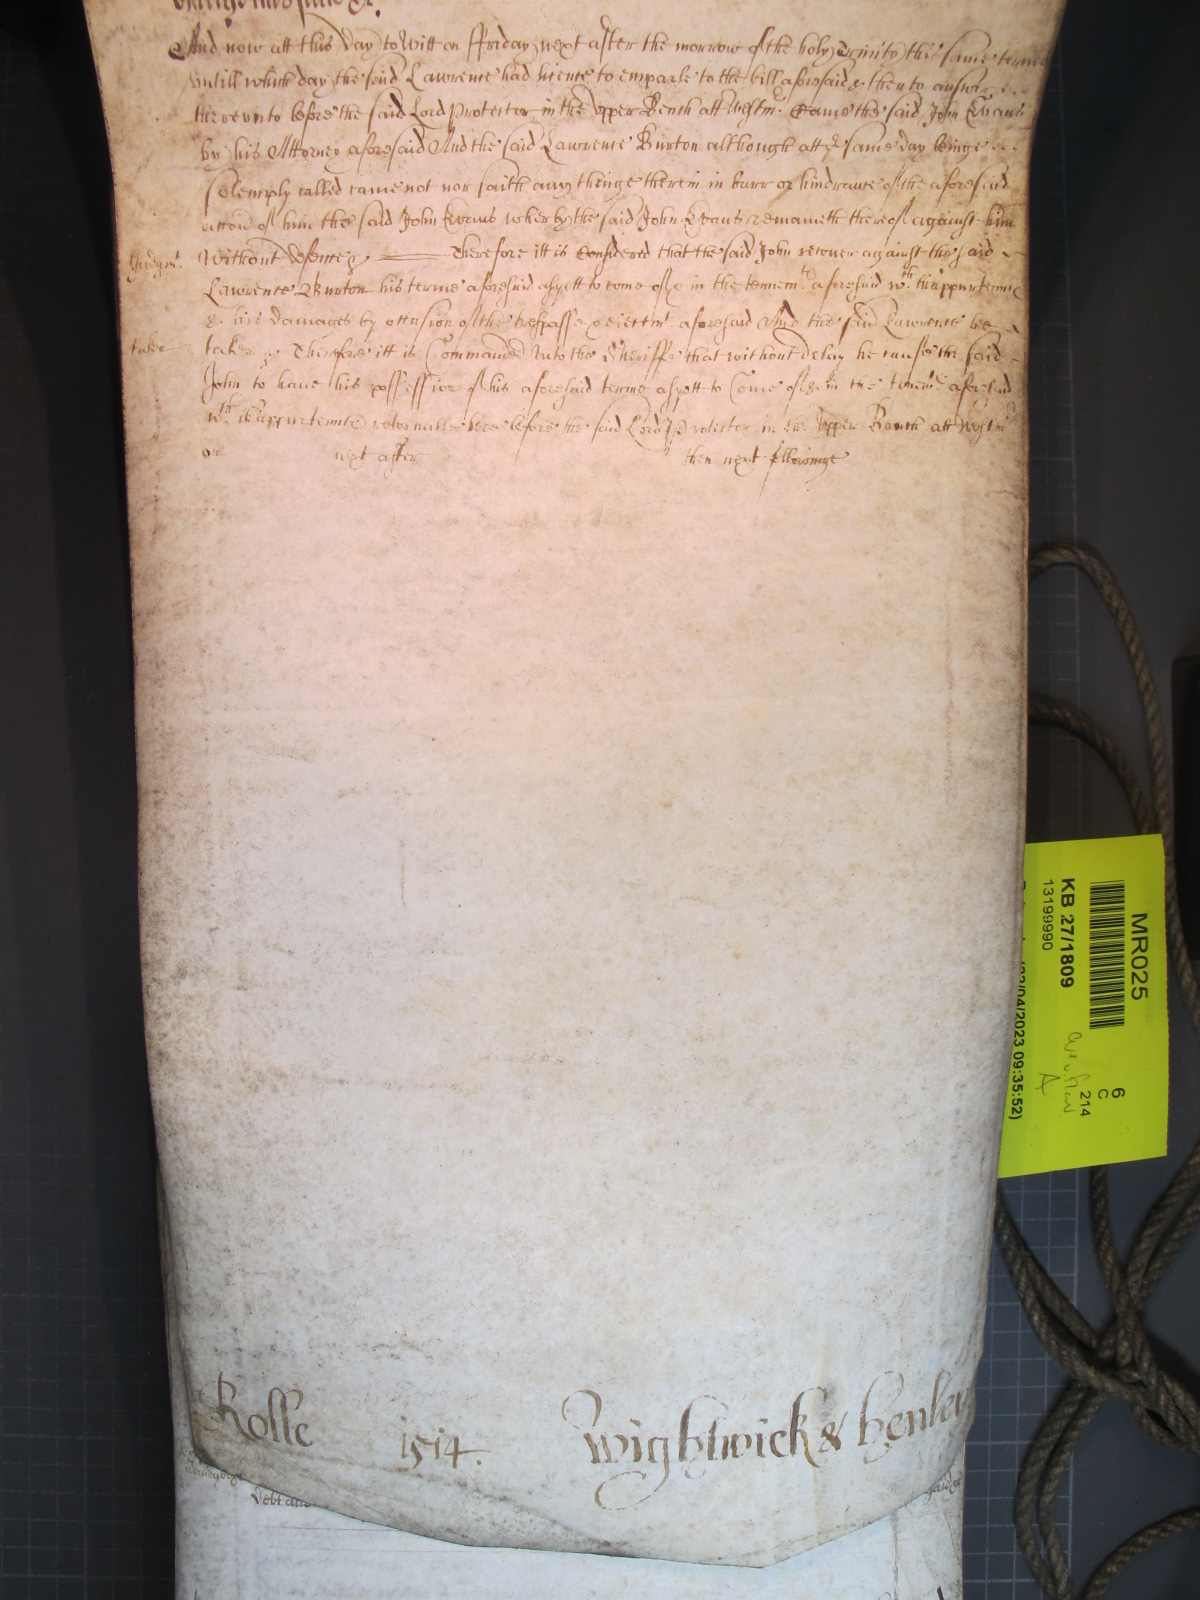 And now att this day to Witt on ffriday next after the morrow of the holy Trinity this same terme
untill which day the said Lawrence had licence to emparle to the bill aforesaid & then to answere
thereunto before the said Lord Protector in the Upper Bench att Westm. Came the said John Evans
by his Attorney aforesaid And the said Lawrence Burton although att ye same day beinge
solemply called came not nor saith any thinge therein in barr or hindrance of the aforesaid
accon of him the said John Evans wherby the said John Evans remaineth thereof against him
Judgmt. Without defence Therefore itt is Considered that the said John recover against the said
Lawrence Burton his terme aforesaid as yett to come of & in the tenemts. aforesaid wth. thappurtennces
& his damages by occasion of the trespasse & ejectmt. aforesaid And the said Lawrence bee
taken taken &c Therefore itt is Commanded unto the Sheriffe that without delay he cause the said
John to have his possession of his aforesaid terme as yett to Come of & in the tenemts. aforesaid
wth. thappurtennces returnable here before the said Lord Protector in the Upper Bench att Westm
on next after then next followinge
Rolle 1514. Wightwick & Henley
debt
MR025
6
C
214
KB 27/1809
13199990
/04/2023 09:35:52)